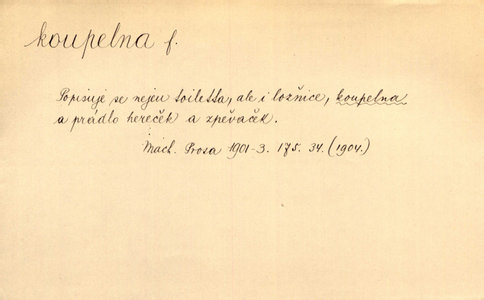 koupelna f.
Popisuje se nejen toiletta, ale i ložnice, koupelna
a prádlo hereček a zpěvaček.
Mach. Prosa 1901-3. 175. 34. (1904.)